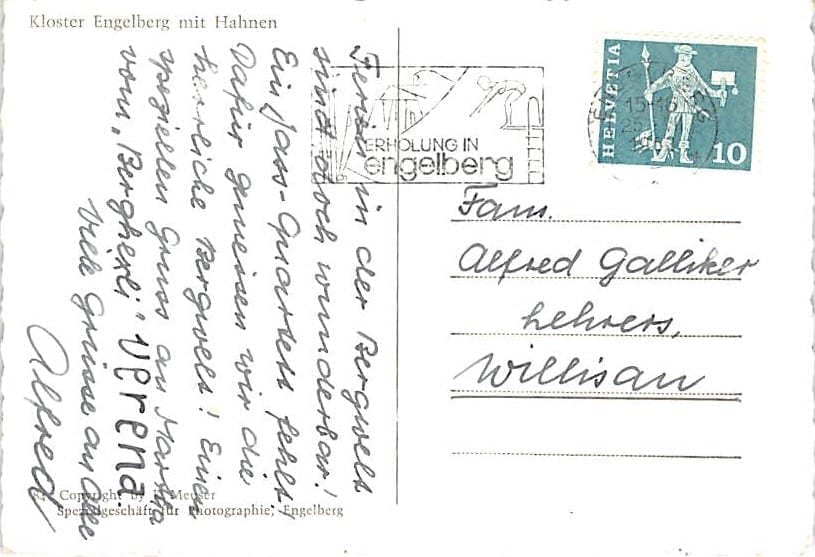 Kloster Engelberg mit Hahnen
Ferien in der Bergwelt
sind doch wunderbar!
Ein Jass-Quartett fehlt,
Dafür geniessen wir die
herrliche Bergwelt! Einen
speziellen Gruss an Martha
vom „Berghexli" Verena.
Viele Grüsse an Alle
Alfred
ERHOLUNG IN
engelberg
HELVETIA
10
15-16
25
Fam.
Alfred Galliker
Lehrers,
Willisau
Copyright by Meuser
Spezialgeschäft für Photographie, Engelberg